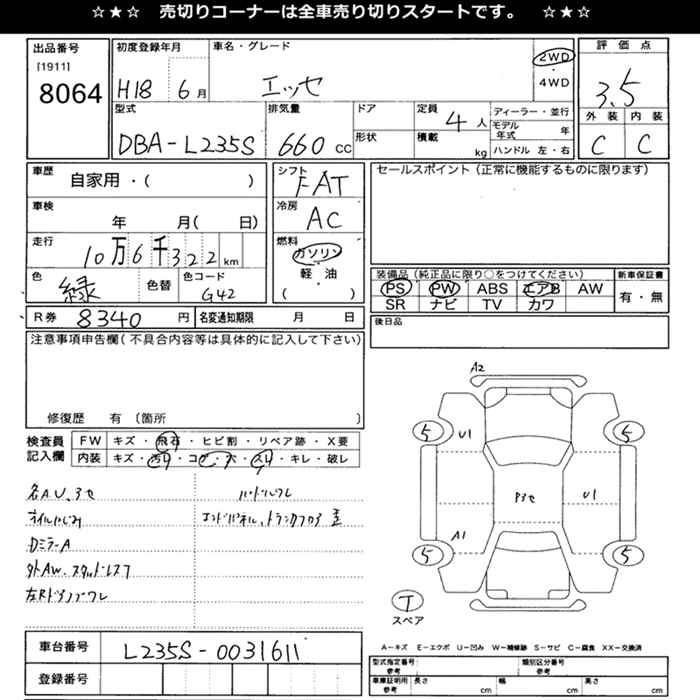 ☆★☆ 売切りコーナーは全車売り切りスタートです。 ☆★☆
出品番号
[1911]
8064
初度登録年月
H18 6月
車名・グレード
エッセ
2WD
・
4WD
評価点
3.5
外装 内装
C C
型式
DBA-L235S
排気量
660 cc
ドア
形状
定員
4人
積載
kg
ディーラー・並行
モデル年式 年
ハンドル 左・右
車歴
自家用・( )
車検
年 月( 日)
走行
10万6千322 km
色
緑
色替
色コード
G42
シフト
FAT
冷房
AC
燃料
ガソリン
軽・油
( )
セールスポイント(正常に機能するものに限ります)
装備品(純正品に限り○をつけてください)
PS PW ABS エアB AW
SR ナビ TV カワ
新車保証書
有・無
R券 8340円
名変通知期限 月 日
後日品
注意事項申告欄(不具合内容等は具体的に記入して下さい)
修復歴 有 (箇所 )
検査員記入欄
FW キズ・飛石・ヒビ割・リペア跡・X要
内装 キズ・汚れ・コゲ・穴・スレ・キレ・破レ
各AU、ヨセ
オイルにじみ
Dミラ-A
外AW、スタッドレス
左Rドアノブワレ
ハンドルスレ
エンドパネル、トランクフロア歪
A2
5
5
U1
P3セ
U1
A1
5
5
T
スペア
車台番号
L235S-0031611
登録番号
A-キズ E-エクボ U-凹み W-補修跡 S-サビ C-腐食 XX-交換済
型式指定番号
参考
類別区分番号
参考
車庫証明用
参考
長さ cm
幅 cm
高さ cm